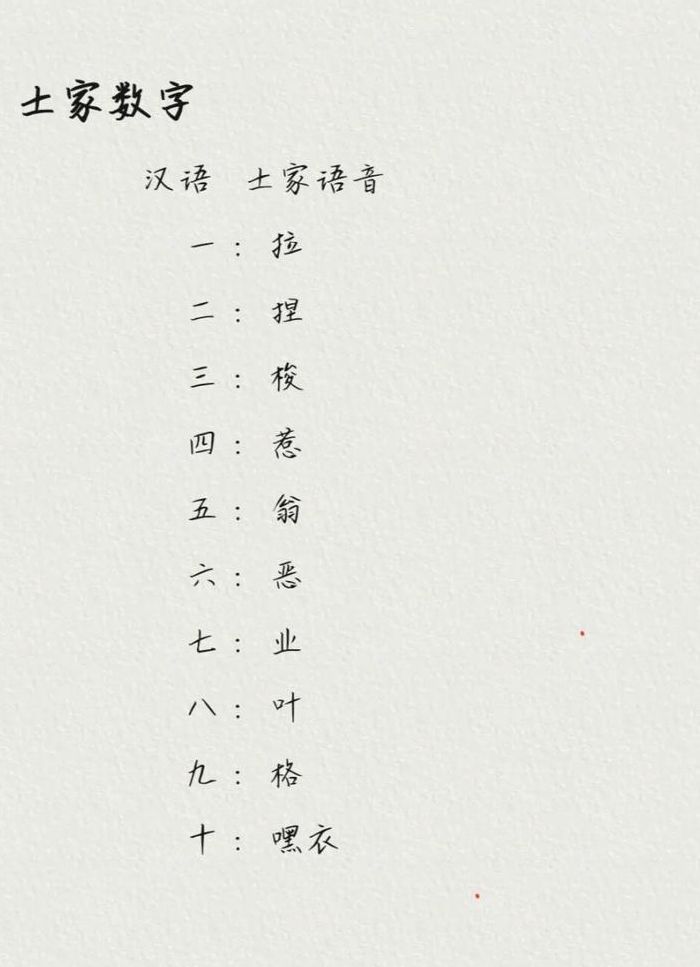 土家数字
汉语 土家语音
一：拉
二：捏
三：梭
四：惹
五：翁
六：恶
七：业
八：叶
九：格
十：嘿衣